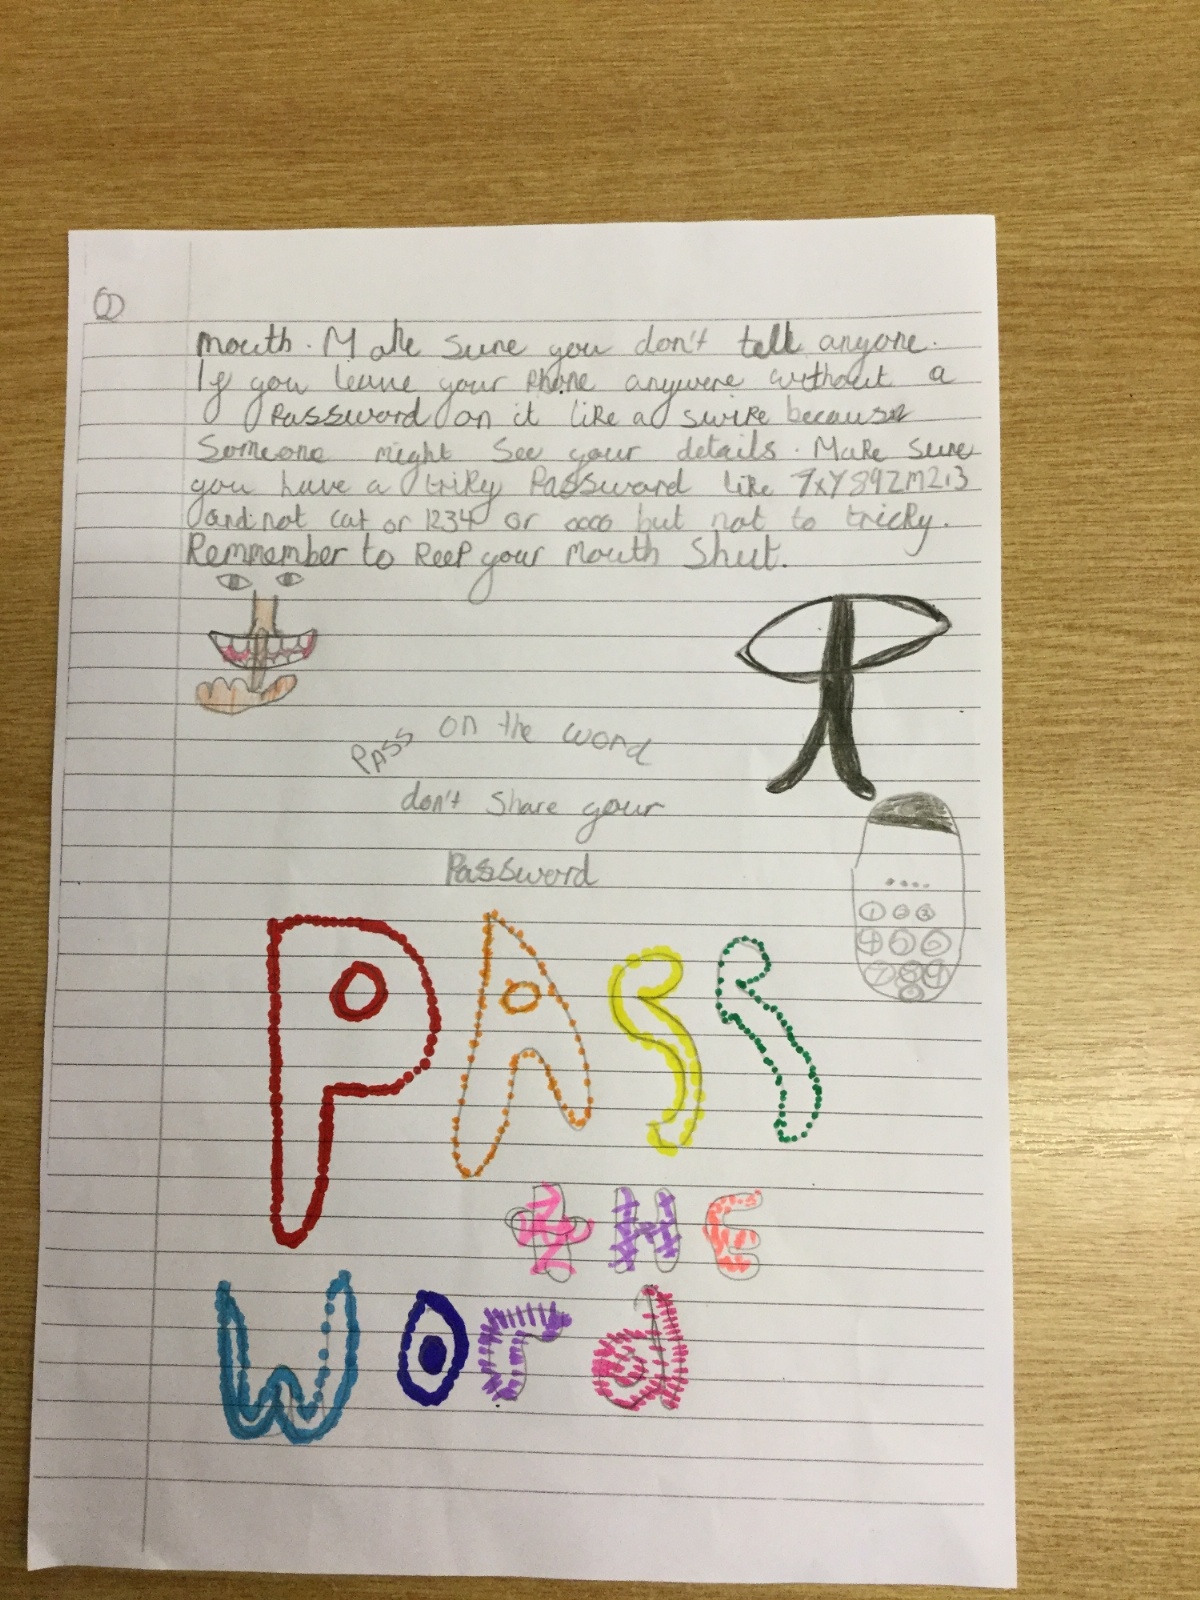 mouth. Make sure you don't tell anyone.
If you leave your Phone anywere without a
Password on it like a swire because
Someone might See your details. Make sure
you have a triky Password like 7xY89ZM213
and not cat or 1234 or 0000 but not to tricky.
Remmember to keep your mouth Shut.
Pass on the word
don't share your
Password
1 2 3
4 5 6
7 8 9
0
PASS
tHE
Word